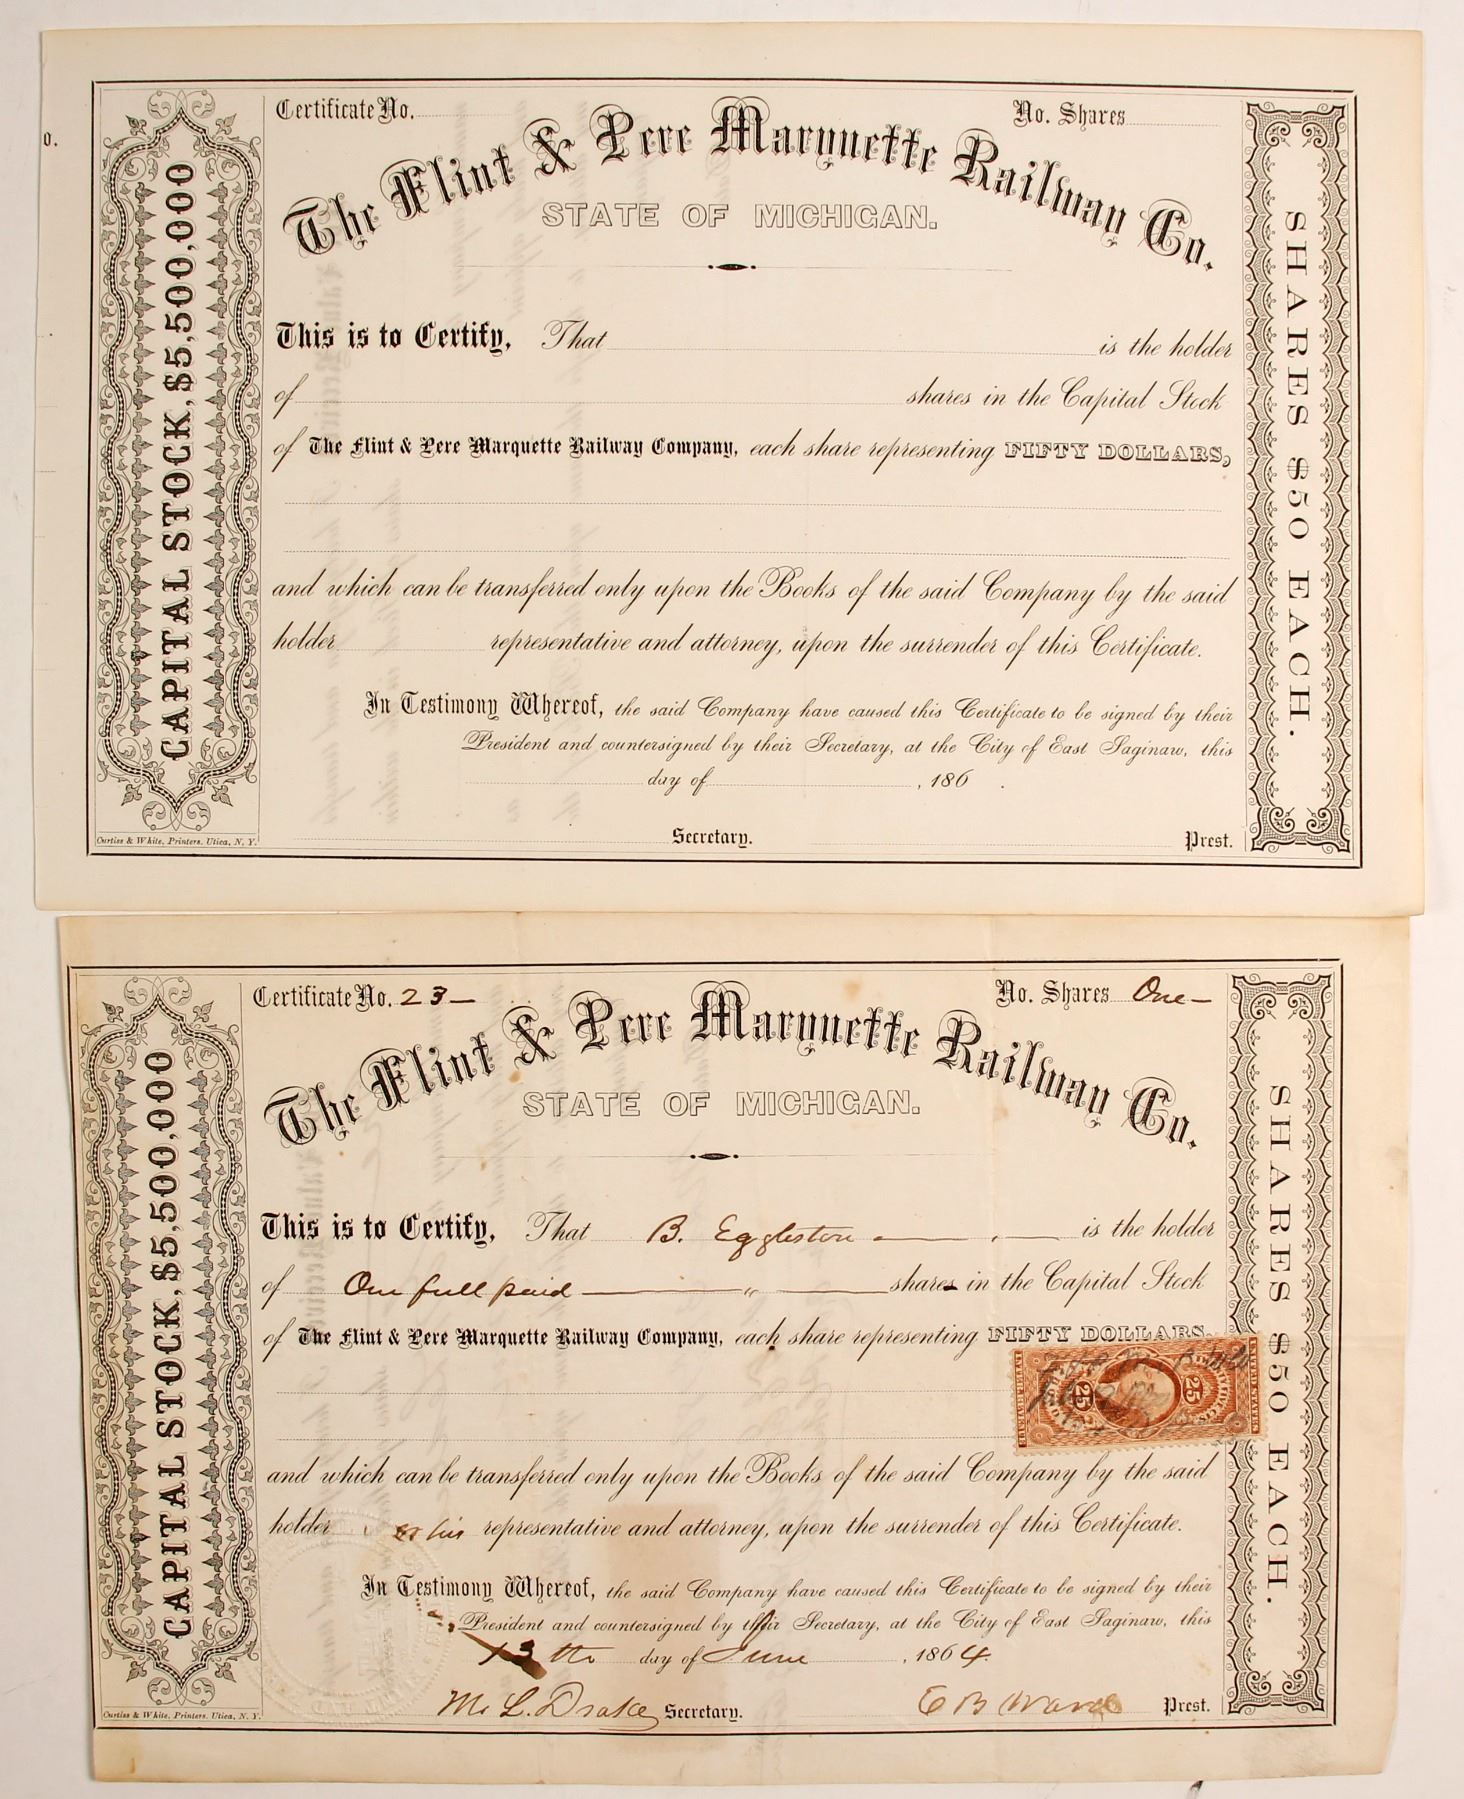 Certificate No.
No. Shares
o.
The Flint & Pere Marquette Railway Co.
STATE OF MICHIGAN.
CAPITAL STOCK, $5,500,000
SHARES $50 EACH.
This is to Certify, That is the holder
of shares in the Capital Stock
of The Flint & Pere Marquette Railway Company, each share representing FIFTY DOLLARS,
and which can be transferred only upon the Books of the said Company by the said
holder representative and attorney, upon the surrender of this Certificate.
In Testimony Whereof, the said Company have caused this Certificate to be signed by their
President and countersigned by their Secretary, at the City of East Saginaw, this
day of , 186 .
Secretary. Prest.
Curtiss & White, Printers. Utica, N. Y.
Certificate No. 23
No. Shares One
The Flint & Pere Marquette Railway Co.
STATE OF MICHIGAN.
CAPITAL STOCK, $5,500,000
SHARES $50 EACH.
This is to Certify, That B. Eggleston is the holder
of One full paid " shares in the Capital Stock
of The Flint & Pere Marquette Railway Company, each share representing FIFTY DOLLARS
25 25
and which can be transferred only upon the Books of the said Company by the said
holder or his representative and attorney, upon the surrender of this Certificate.
In Testimony Whereof, the said Company have caused this Certificate to be signed by their
President and countersigned by their Secretary, at the City of East Saginaw, this
13th day of June , 1864.
M. L. Drake Secretary. E B Ward Prest.
Curtiss & White, Printers. Utica, N. Y.